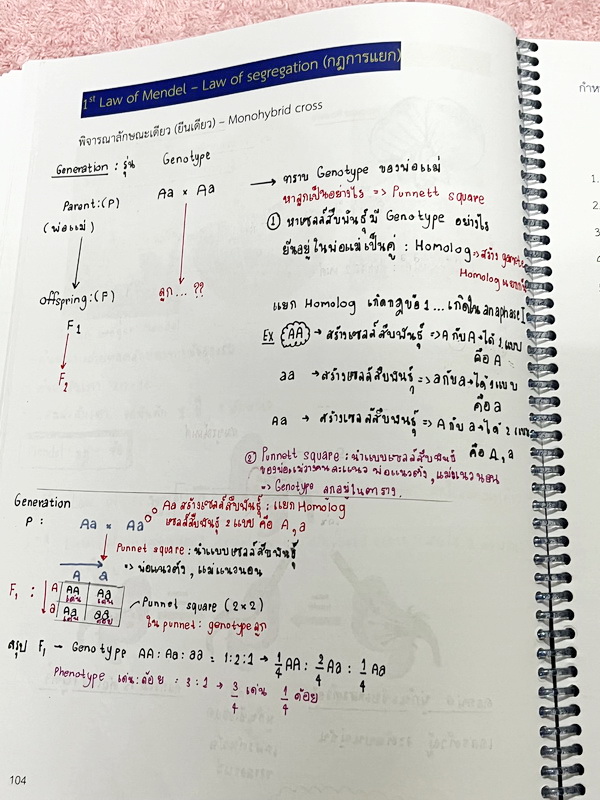 1st Law of Mendel – Law of segregation (กฎการแยก)
พิจารณาลักษณะเดียว (ยีนเดียว) – Monohybrid cross
Generation : รุ่น
Genotype
Parent:(P)
Aa × Aa
(พ่อแม่)
Offspring:(F)
ลูก... ??
F1
F2
→ ทราบ Genotype ของพ่อแม่
หาลูกเป็นอย่างไร => Punnett square
① หาเซลล์สืบพันธุ์มี Genotype อย่างไร
ยีนอยู่ในพ่อแม่เป็นคู่ : Homolog => สร้าง gamete
Homolog แยกกัน
แยก Homolog เกิดกฎข้อ 1 ... เกิดใน anaphase I
Ex AA → สร้างเซลล์สืบพันธุ์ => A กับ A → ได้ 1 แบบ
คือ A
aa → สร้างเซลล์สืบพันธุ์ => a กับ a → ได้ 1 แบบ
คือ a
Aa → สร้างเซลล์สืบพันธุ์ => A กับ a → ได้ 2 แบบ
คือ A, a
② Punnett square : นำแบบเซลล์สืบพันธุ์
ของพ่อแม่วางคนละแนว พ่อแนวตั้ง , แม่แนวนอน
=> Genotype ลูกอยู่ในตาราง.
Generation
P : Aa × Aa
Aa สร้างเซลล์สืบพันธุ์ : แยก Homolog
เซลล์สืบพันธุ์ 2 แบบ คือ A, a
Punnet square : นำแบบเซลล์สืบพันธุ์
=> พ่อแนวตั้ง , แม่แนวนอน
A a
F1 : A AA Aa
เด่น เด่น
a Aa aa
เด่น ด้อย
Punnet square (2×2)
ใน punnet : genotype ลูก
สรุป F1 – Genotype AA : Aa : aa = 1:2:1 → 1/4 AA : 2/4 Aa : 1/4 aa
Phenotype เด่น : ด้อย = 3:1 → 3/4 เด่น 1/4 ด้อย
104
กำห
1.
2.